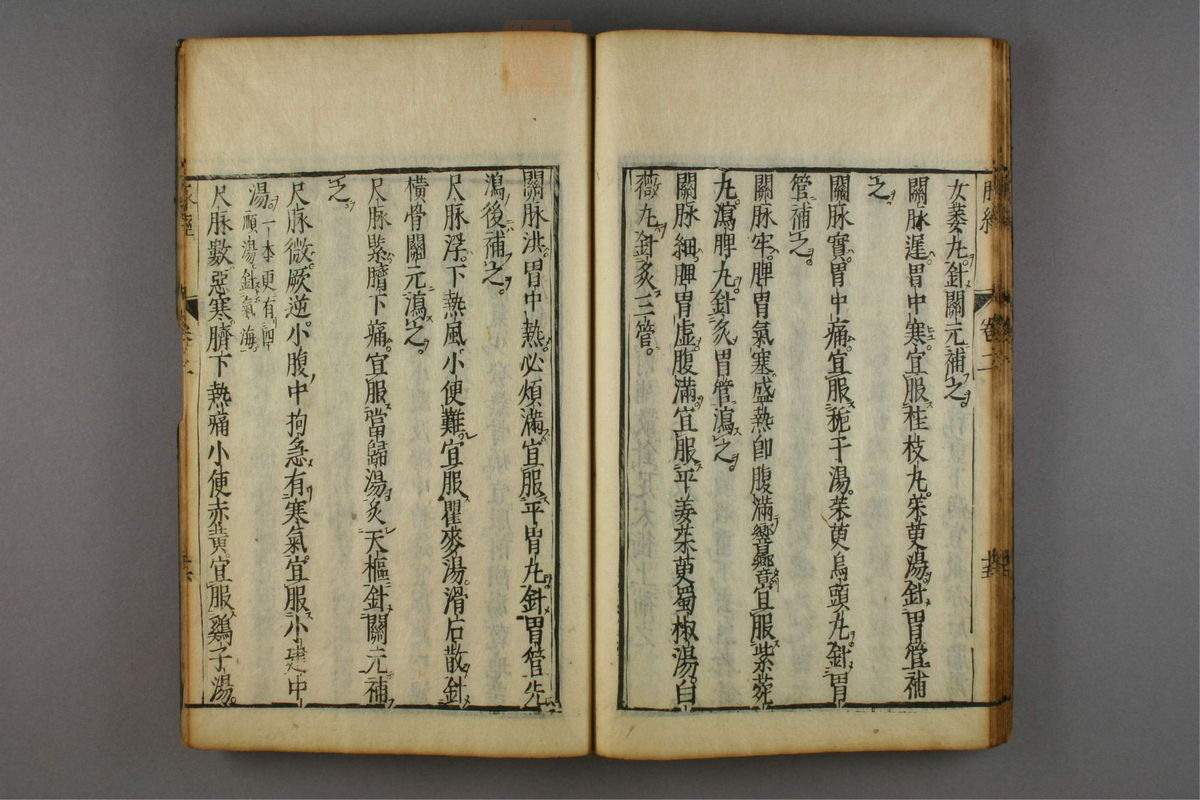 女萎丸針關元補之
關脉遲胃中寒宜服桂枝丸茱萸湯針胃管補
之
關脉實胃中痛宜服梔子湯茱萸烏頭丸針胃
管補之
關脉牢脾胃氣塞盛熱即腹滿響響宜服紫菀
丸瀉脾丸針灸胃管瀉之
關脉細脾胃虛腹滿宜服平姜茱萸蜀椒湯白
薇丸針灸三管
關脉洪胃中熱必煩滿宜服平胃丸針胃管先
瀉後補之
尺脉浮下熱風小便難宜服瞿麥湯滑石散針
橫骨關元瀉之
尺脉緊臍下痛宜服當歸湯灸天樞針關元補
之
尺脉微厥逆小腹中拘急有寒氣宜服小建中
湯一本更有四
順湯針氣海
尺脉數惡寒臍下熱痛小便赤黃宜服鷄子湯
脉經 卷二